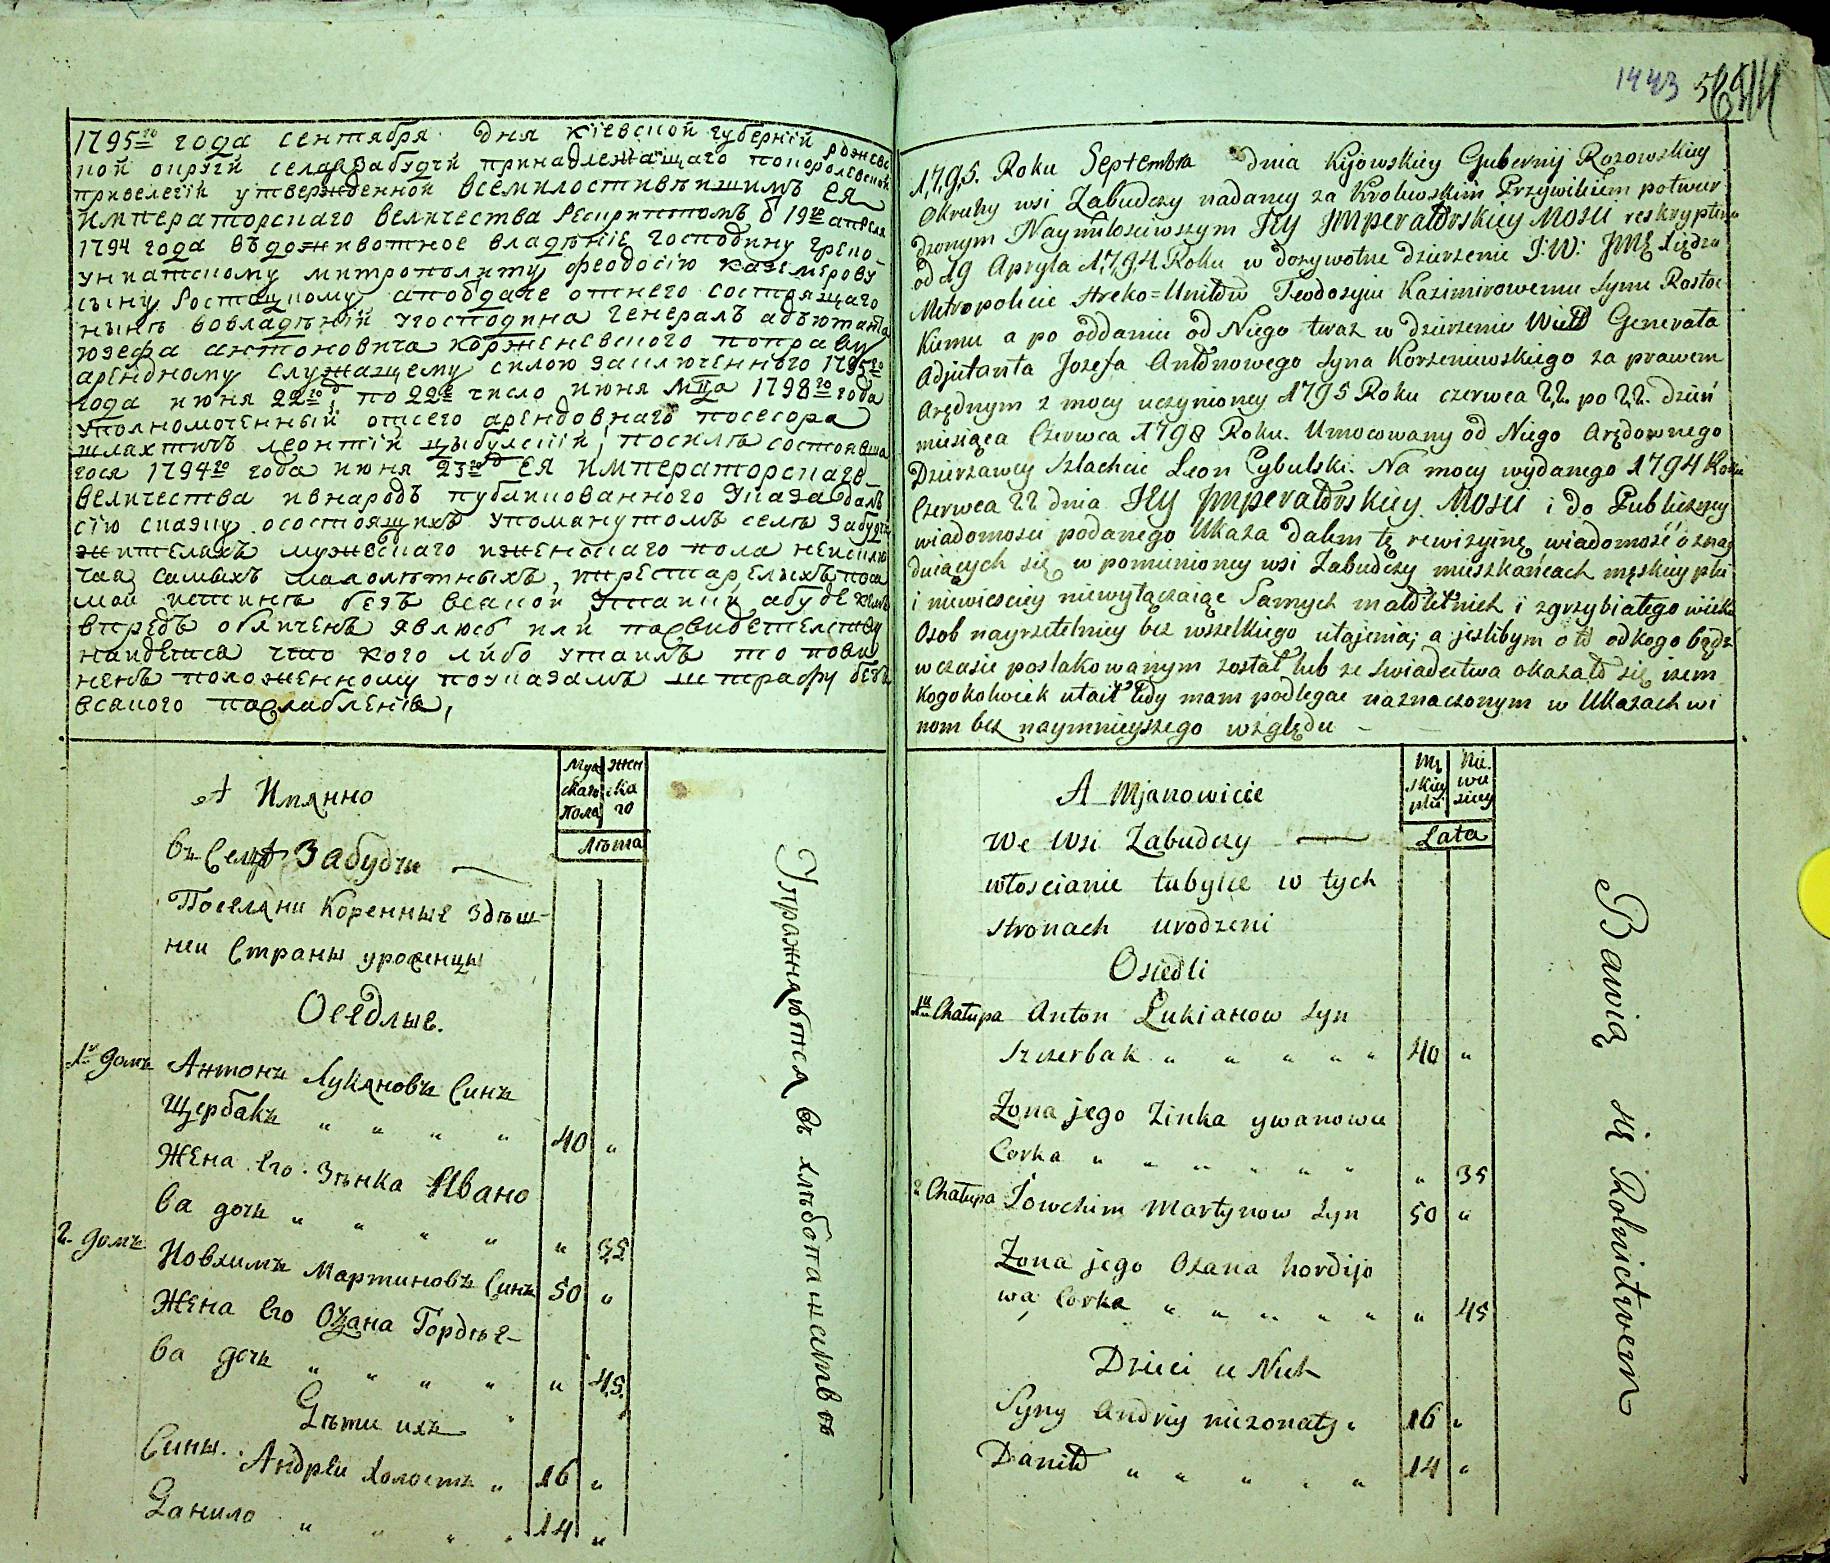 1795го года сентября дня кіевской губерніи рожевс
кой округи села Забудчи принадлежащаго покоролевской
привелегіи утвержденной всемилостивѣишимъ Ея
Императорскаго величества Рескриптомъ 19го апреля
1794 года въдоживотное владѣніе господину греко-
униатскому митрополиту феодосію казимирову
сыну Ростоцкому апоотдаче отнего состоящаго
нынѣ вовладѣніи угосподина генералъ адъютанта
юзефа антоновича корженевского поправу
арендному служащему силою заключенного 1795го
года июня 22го по 22е число июня мца 1798го года
уполномоченный отсего арендовнаго посесора
шляхтичъ леонтій цыбулскій, посилѣ состоявша
гося 1794го года июня 23го Ея императорскаго
величества ивнародъ публикованного Указа далъ
сію сказку осостоящихъ упоманутомъ селѣ Забудчи
жителахъ мужескаго иженскаго пола неисклю
чая самыхъ малолѣтныхъ, ипрестарелыхъ, поса
мой истинѣ безъ всакой Утайки, абуде кемъ
впредь обличенъ явлюсь или посвидетелству
найдетса что кого либо утаилъ то пови
ненъ положенному поуказамъ штрафу безъ
всакого послабленіа,
А Имянно
Муж
скаго
пола
жен
ска
го
Лѣта
въ Селѣ Забудчи
Поселяни Коренные Здѣш-
неи Страны уроженцы
Оседлые.
1й домъ Антонъ Лукяновъ Синъ
Щербакъ " " " " 40 "
Жена Его Зѣнка Ивано
ва дочь " " " " " 35
2 домъ Иовхимъ Мартиновъ Синъ 50 "
Жена Его Оксана Гордѣе-
ва дочь " " " " " 45.
Дѣти ихъ
Сины. Андреи холостъ " 16 "
Данило " " " " 14 "
Упражняются въ хлѣбопашествѣ
1443
1795. Roku Septembra dnia Kijowskiey Gubernij Rozowskiey
Okruhy wsi Zabudczy nadaney za Krolewskim Przywileiem potwier
dzonym Naymiłosciwszym Jey Jmperatorskiey Mości reskryptem
od 19 Apryla 1794 Roku w dozywotne dzierzenie J:W: Jmę Xiędzu
Metropolicie Hreko=Unitow Teodozyiu Kazimirowemu synu Rostoc
kiemu a po oddaniu od Niego teraz w dzierzenie Wielo Generała
Adjutanta Jozefa Antonowego syna Korzeniewskiego za prawem
Arędnym z mocy uczynioney 1795 Roku czerwca 22 po 22. dzień
miesiąca Czerwca 1798 Roku. Umocowany od Niego Arędownego
Dzierzawcy szlachcic Leon Cybulski. Na mocy wydanego 1794 Roku
Czerwca 22 dnia Jey Jmperatorskiey Mosci i do Publiczney
wiadomości podanego Ukaza dałem tę rewizyinę wiadomość o znay
duiących się w pomienioney wsi Zabudczy mieszkańcach męskiey płci
i niewiesciey niewyłączaiąc Samych małoletnich i zgrzybiałego wieku
Osob nayrzetelniey bez wszelkiego utajenia; a jeslibym o to od kogo bądź
w czasie poszlakowanym został lub ze swiadectwa okazało się izem
kogokolwiek utaił tedy mam podlegac naznaczonym w Ukazach wi
nom bez naymnieyszego względu –
A Mjanowicie
Mę
skiey
płci
Nie.
wie
sciey
Lata
We Wsi Zabudczy
włoscianie tubylce w tych
stronach urodzeni
Osiedli
1a Chałupa Anton Łukianow syn
Szczerbak " " " " " 40 "
Zona jego Zinka ywanowa
Corka " " " " " " " 35
2 Chałupa Jowchim Martynow syn 50 "
Zona jego Oxana hordijo
wa, Corka " " " " " " 45
Dzieci u Nich
Syny Andriy niezonaty " 16 "
Daniło " " " " " 14 "
Bawią się Rolnictwem